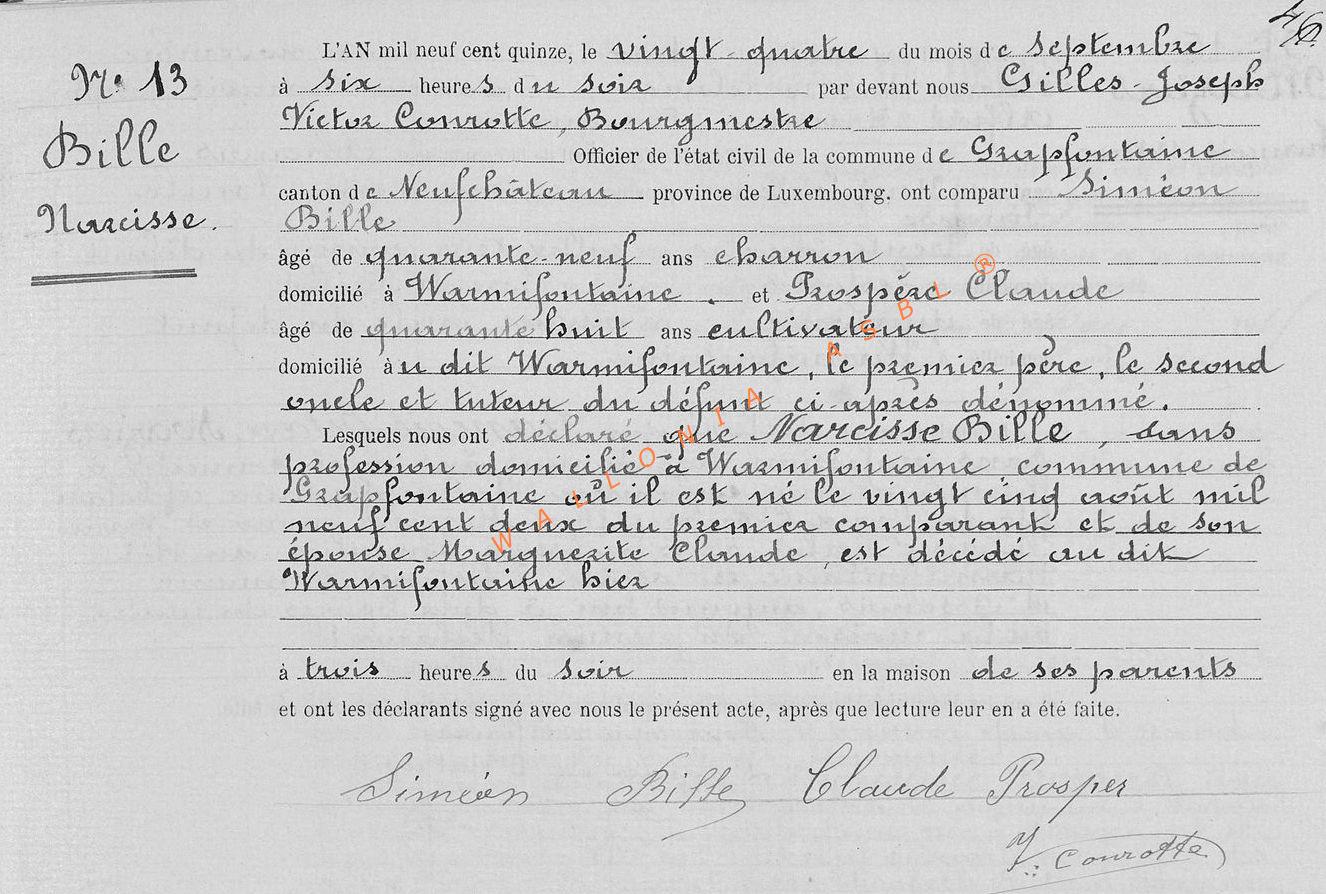 46
N° 13
Bille
Narcisse.
L'AN mil neuf cent quinze, le vingt-quatre du mois de Septembre
à six heures du soir par devant nous Gilles-Joseph
Victor Conrotte, Bourgmestre
Officier de l'état civil de la commune de Grapfontaine
canton de Neufchâteau province de Luxembourg, ont comparu Siméon
Bille
âgé de quarante-neuf ans charron
domicilié à Warmifontaine. et Prospère Claude
âgé de quarante huit ans cultivateur
domicilié au dit Warmifontaine, le premier père, le second
oncle et tuteur du défunt ci-après dénommé.
Lesquels nous ont déclaré que Narcisse Bille, sans
profession domicilié à Warmifontaine commune de
Grapfontaine où il est né le vingt cinq août mil
neuf cent deux du premier comparant et de son
épouse Marguerite Claude, est décédé au dit
Warmifontaine hier
à trois heures du soir en la maison de ses parents
et ont les déclarants signé avec nous le présent acte, après que lecture leur en a été faite.
Siméon Bille Claude Prosper
V: Conrotte
WALLONIA ASBL ®